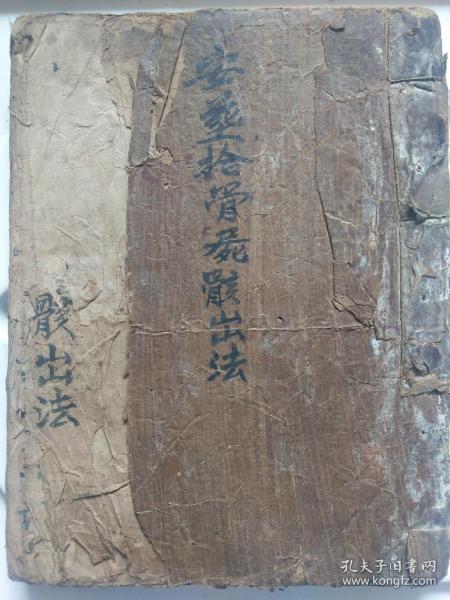 安葬拾骨屍骸出法
骸出法
孔夫子旧书网
www.kongfz.com